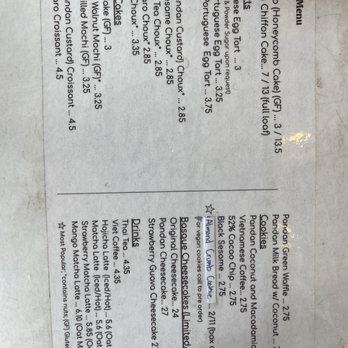 Menu
o (Honeycomb Cake) (GF) ... 3 / 13.5
Chiffon Cake... 7 / 13 (full loaf)
ts
ese Egg Tart ... 3
& Powder Sugar upon request)
rtuguese Egg Tart ... 3.25
Portuguese Egg Tart ... 3.75
andan Custard) Choux* ... 2.85
esame Choux* ... 2.85
Tea Choux* ... 2.85
ro Choux* 2.85
Choux* ... 3.35
Cakes
ake (GF) ... 3
Walnut Mochi (GF)* ... 3.25
illed Mochi (GF) ... 3.25
andan Custard) Croissant ... 4.5
aro Croissant ... 4.5
Pandan Green Waffle ..2.75
Pandan Milk Bread w/ Coconut ... 
Cookies
Pandan Coconut and Macadamia
Vietnamese Coffee... 2.75
52% Cocoa Chip ... 2.75
Black Sesame ... 2.75
☆ Almond Crumb Cookie ... 2/11 (box o
(For vegan cookies call to pre order)
Basque Cheesecakes (Limited
Original Cheesecake... 24
Pandan Cheesecake... 27
Strawberry Guava Cheesecake 2
Drinks
Thai Tea ... 4.35
Viet Coffee ... 4.35
Hojicha Latte (Iced/Hot) ... 5.6 (Oat
Matcha Latte (Iced/Hot) ... 5.6 (Oat
Strawberry Matcha Latte ... 5.85 (O
Mango Matcha Latte ... 6.10 (Oat M
☆ Most Popular; *contains nuts; (GF) Gluten